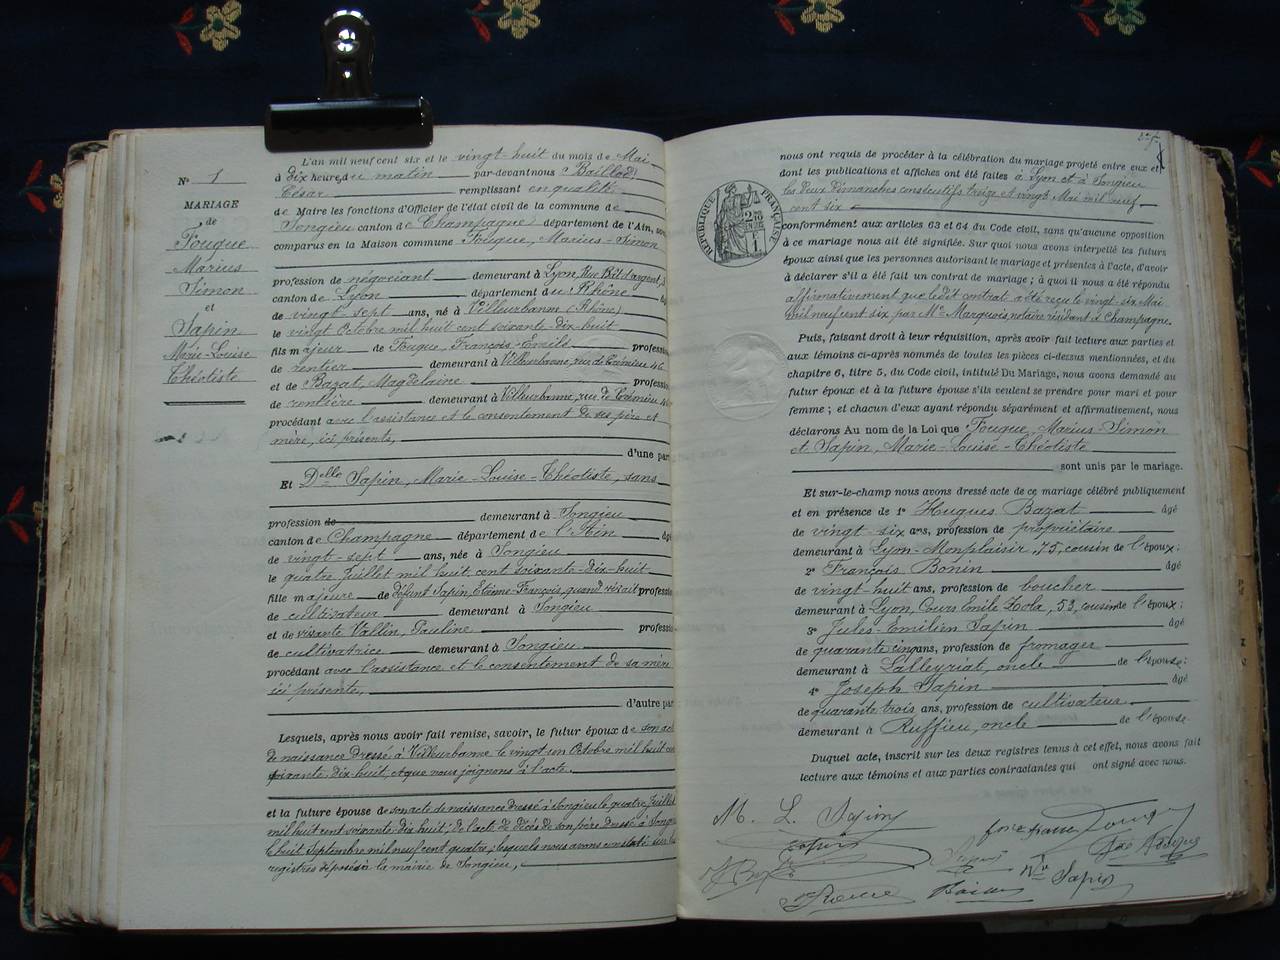 N° 1
MARIAGE
de
Fougue
Marius
Simon
et
Sapin
Marie-Louise
Théotiste
L'an mil neuf cent six et le vingt-huit du mois de Mai
à dix heures du matin par-devant nous Baillod,
César remplissant en qualité
de Maire les fonctions d'Officier de l'état civil de la commune de
Songieu canton de Champagne département de l'Ain, sont
comparus en la Maison commune Fougue, Marius-Simon
profession de négociant demeurant à Lyon, Rue Bât d'argent,
canton de Lyon département du Rhône
de vingt sept ans, né à Villeurbanne (Rhône)
le vingt Octobre mil huit cent soixante-dix-huit
fils majeur de Fougue, François-Emile profession
de rentier demeurant à Villeurbanne, rue de Crémieu 46
et de Bazat, Magdelaine profession
de rentière demeurant à Villeurbanne, rue de Crémieu 46
procédant avec l'assistance et le consentement de ses père et
mère, ici présents,
d'une part
Et Delle Sapin, Marie-Louise-Théotiste, sans
profession de demeurant à Songieu
canton de Champagne département de l'Ain âgé
de vingt-sept ans, née à Songieu
le quatre Juillet mil huit cent soixante-dix-huit
fille majeure de défunt Sapin, Etienne-François, quand vivait profession
de cultivateur demeurant à Songieu
et de vivante Vallin, Pauline profession
de cultivatrice demeurant à Songieu
procédant avec l'assistance et le consentement de sa mère
ici présente,
d'autre part
Lesquels, après nous avoir fait remise, savoir, le futur époux de son acte
de naissance dressé à Villeurbanne le vingt un Octobre mil huit cent
soixante-dix-huit, et que nous joignons à l'acte.
et la future épouse de son acte de naissance dressé à Songieu le quatre Juillet
mil huit cent soixante-dix-huit; de l'acte de décès de son père dressé à Songieu
le huit Septembre mil neuf cent quatre; lesquels nous avons constaté sur les
registres déposés à la mairie de Songieu,
nous ont requis de procéder à la célébration du mariage projeté entre eux et
dont les publications et affiches ont été faites à Lyon et à Songieu
les deux dimanches consécutifs treize et vingt Mai mil neuf
cent six
RÉPUBLIQUE FRANÇAISE
conformément aux articles 63 et 64 du Code civil, sans qu'aucune opposition
à ce mariage nous ait été signifiée. Sur quoi nous avons interpellé les futurs
époux ainsi que les personnes autorisant le mariage et présentes à l'acte, d'avoir
à déclarer s'il a été fait un contrat de mariage ; à quoi il nous a été répondu
affirmativement que ledit contrat a été reçu le vingt-six Mai
mil neuf cent six par Me Marquois, notaire résidant à Champagne.
Puis, faisant droit à leur réquisition, après avoir fait lecture aux parties et
aux témoins ci-après nommés de toutes les pièces ci-dessus mentionnées, et du
chapitre 6, titre 5, du Code civil, intitulé Du Mariage, nous avons demandé au
futur époux et à la future épouse s'ils veulent se prendre pour mari et pour
femme ; et chacun d'eux ayant répondu séparément et affirmativement, nous
déclarons Au nom de la Loi que Fougue, Marius-Simon
et Sapin, Marie-Louise-Théotiste
sont unis par le mariage.
Et sur-le-champ nous avons dressé acte de ce mariage célébré publiquement
et en présence de 1° Hugues Bazat âgé
de vingt-six ans, profession de propriétaire
demeurant à Lyon-Monplaisir, 75, cousin de l'époux;
2° François Bonin âgé
de vingt-huit ans, profession de boucher
demeurant à Lyon, Cours Emile Zola, 53, cousin de l'époux;
3° Jules-Emilien Sapin âgé
de quarante cinq ans, profession de fromager
demeurant à Lalleyriat, oncle de l'épouse;
4° Joseph Sapin âgé
de quarante trois ans, profession de cultivateur
demeurant à Ruffieu, oncle de l'épouse
Duquel acte, inscrit sur les deux registres tenus à cet effet, nous avons fait
lecture aux témoins et aux parties contractantes qui ont signé avec nous.
M. L. Sapin
Sapin